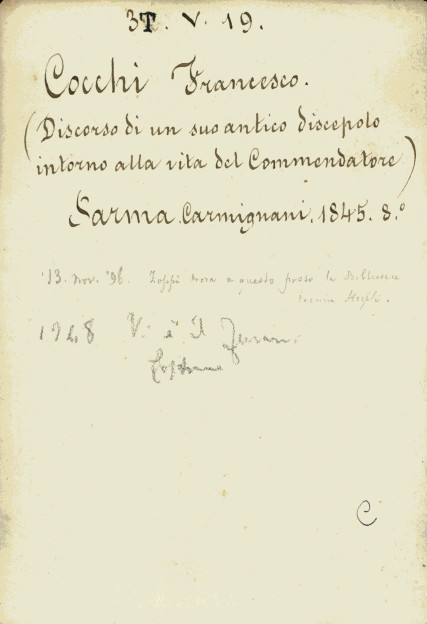 3T. V. 19.
Cocchi Francesco.
(Discorso di un suo antico discepolo
intorno alla vita del Commendatore)
Parma. Carmignani. 1845. 8.°
13. Nov. '96. a questo posto la
1948 V. è il
C